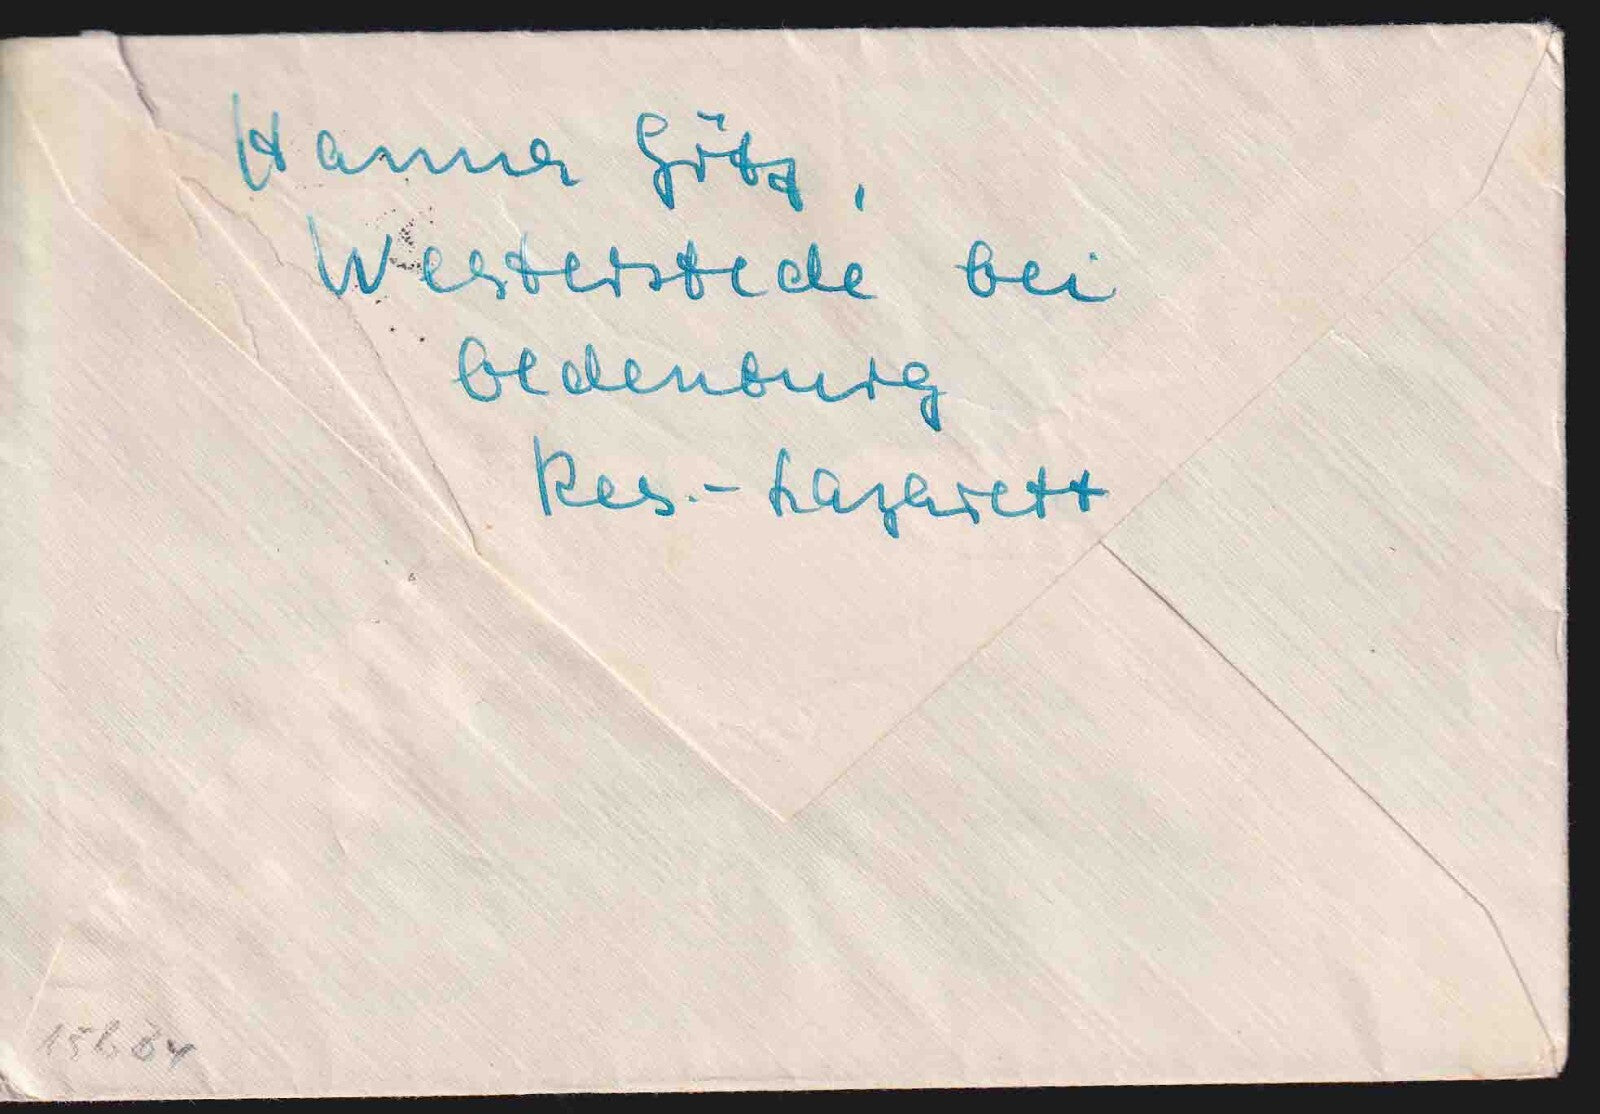 Hanna Götz,
Westerstede bei
Oldenburg
Res.-Lazarett